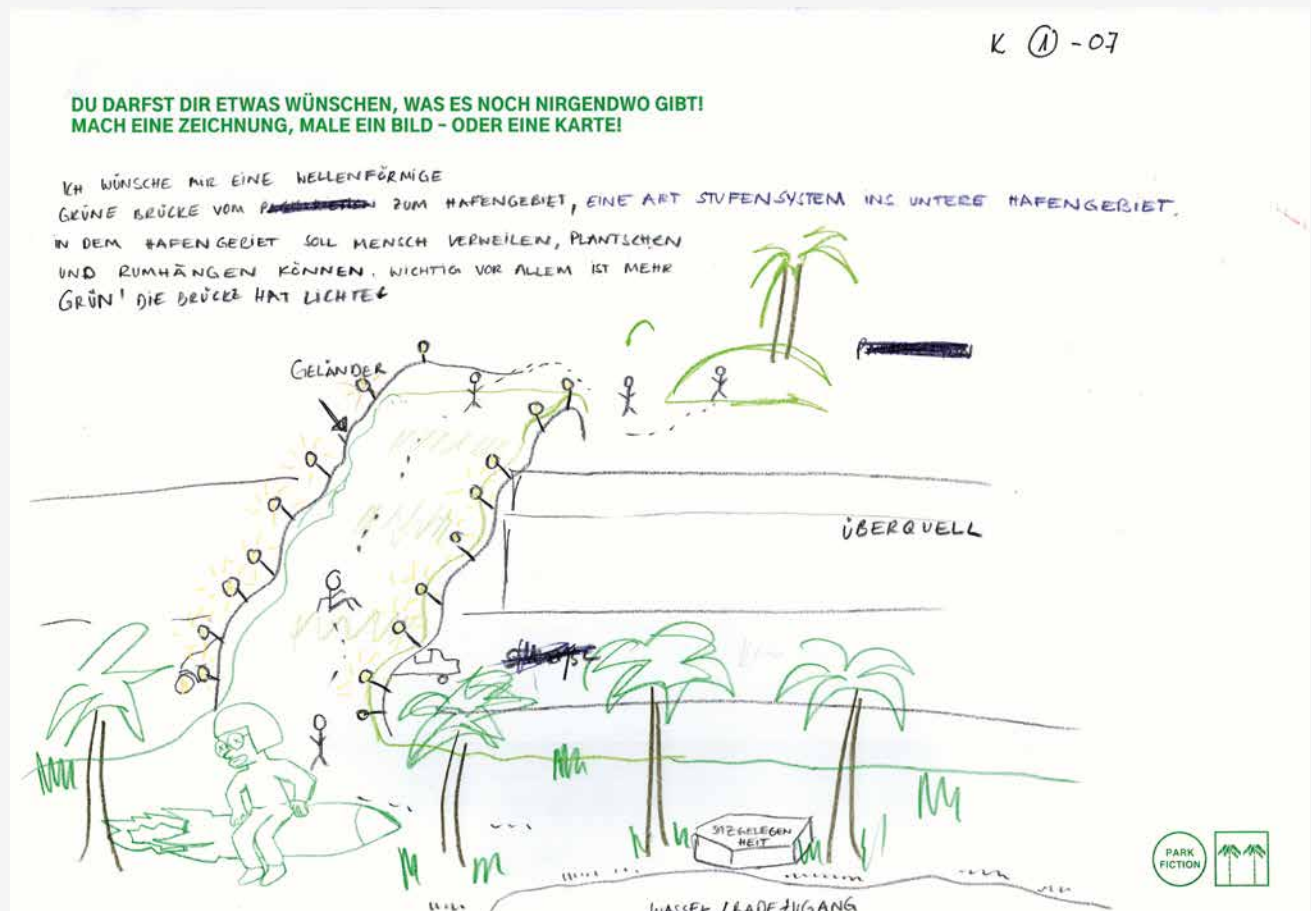 K ① - 07
DU DARFST DIR ETWAS WÜNSCHEN, WAS ES NOCH NIRGENDWO GIBT!
MACH EINE ZEICHNUNG, MALE EIN BILD – ODER EINE KARTE!
ICH WÜNSCHE MIR EINE WELLENFÖRMIGE
GRÜNE BRÜCKE VOM ZUM HAFENGEBIET, EINE ART STUFENSYSTEM INS UNTERE HAFENGEBIET.
IN DEM HAFENGEBIET SOLL MENSCH VERWEILEN, PLANTSCHEN
UND RUMHÄNGEN KÖNNEN. WICHTIG VOR ALLEM IST MEHR
GRÜN! DIE BRÜCKE HAT LICHTER
GELÄNDER
ÜBERQUELL
SITZGELEGEN
HEIT
PARK
FICTION
WASSER / BADEZUGANG